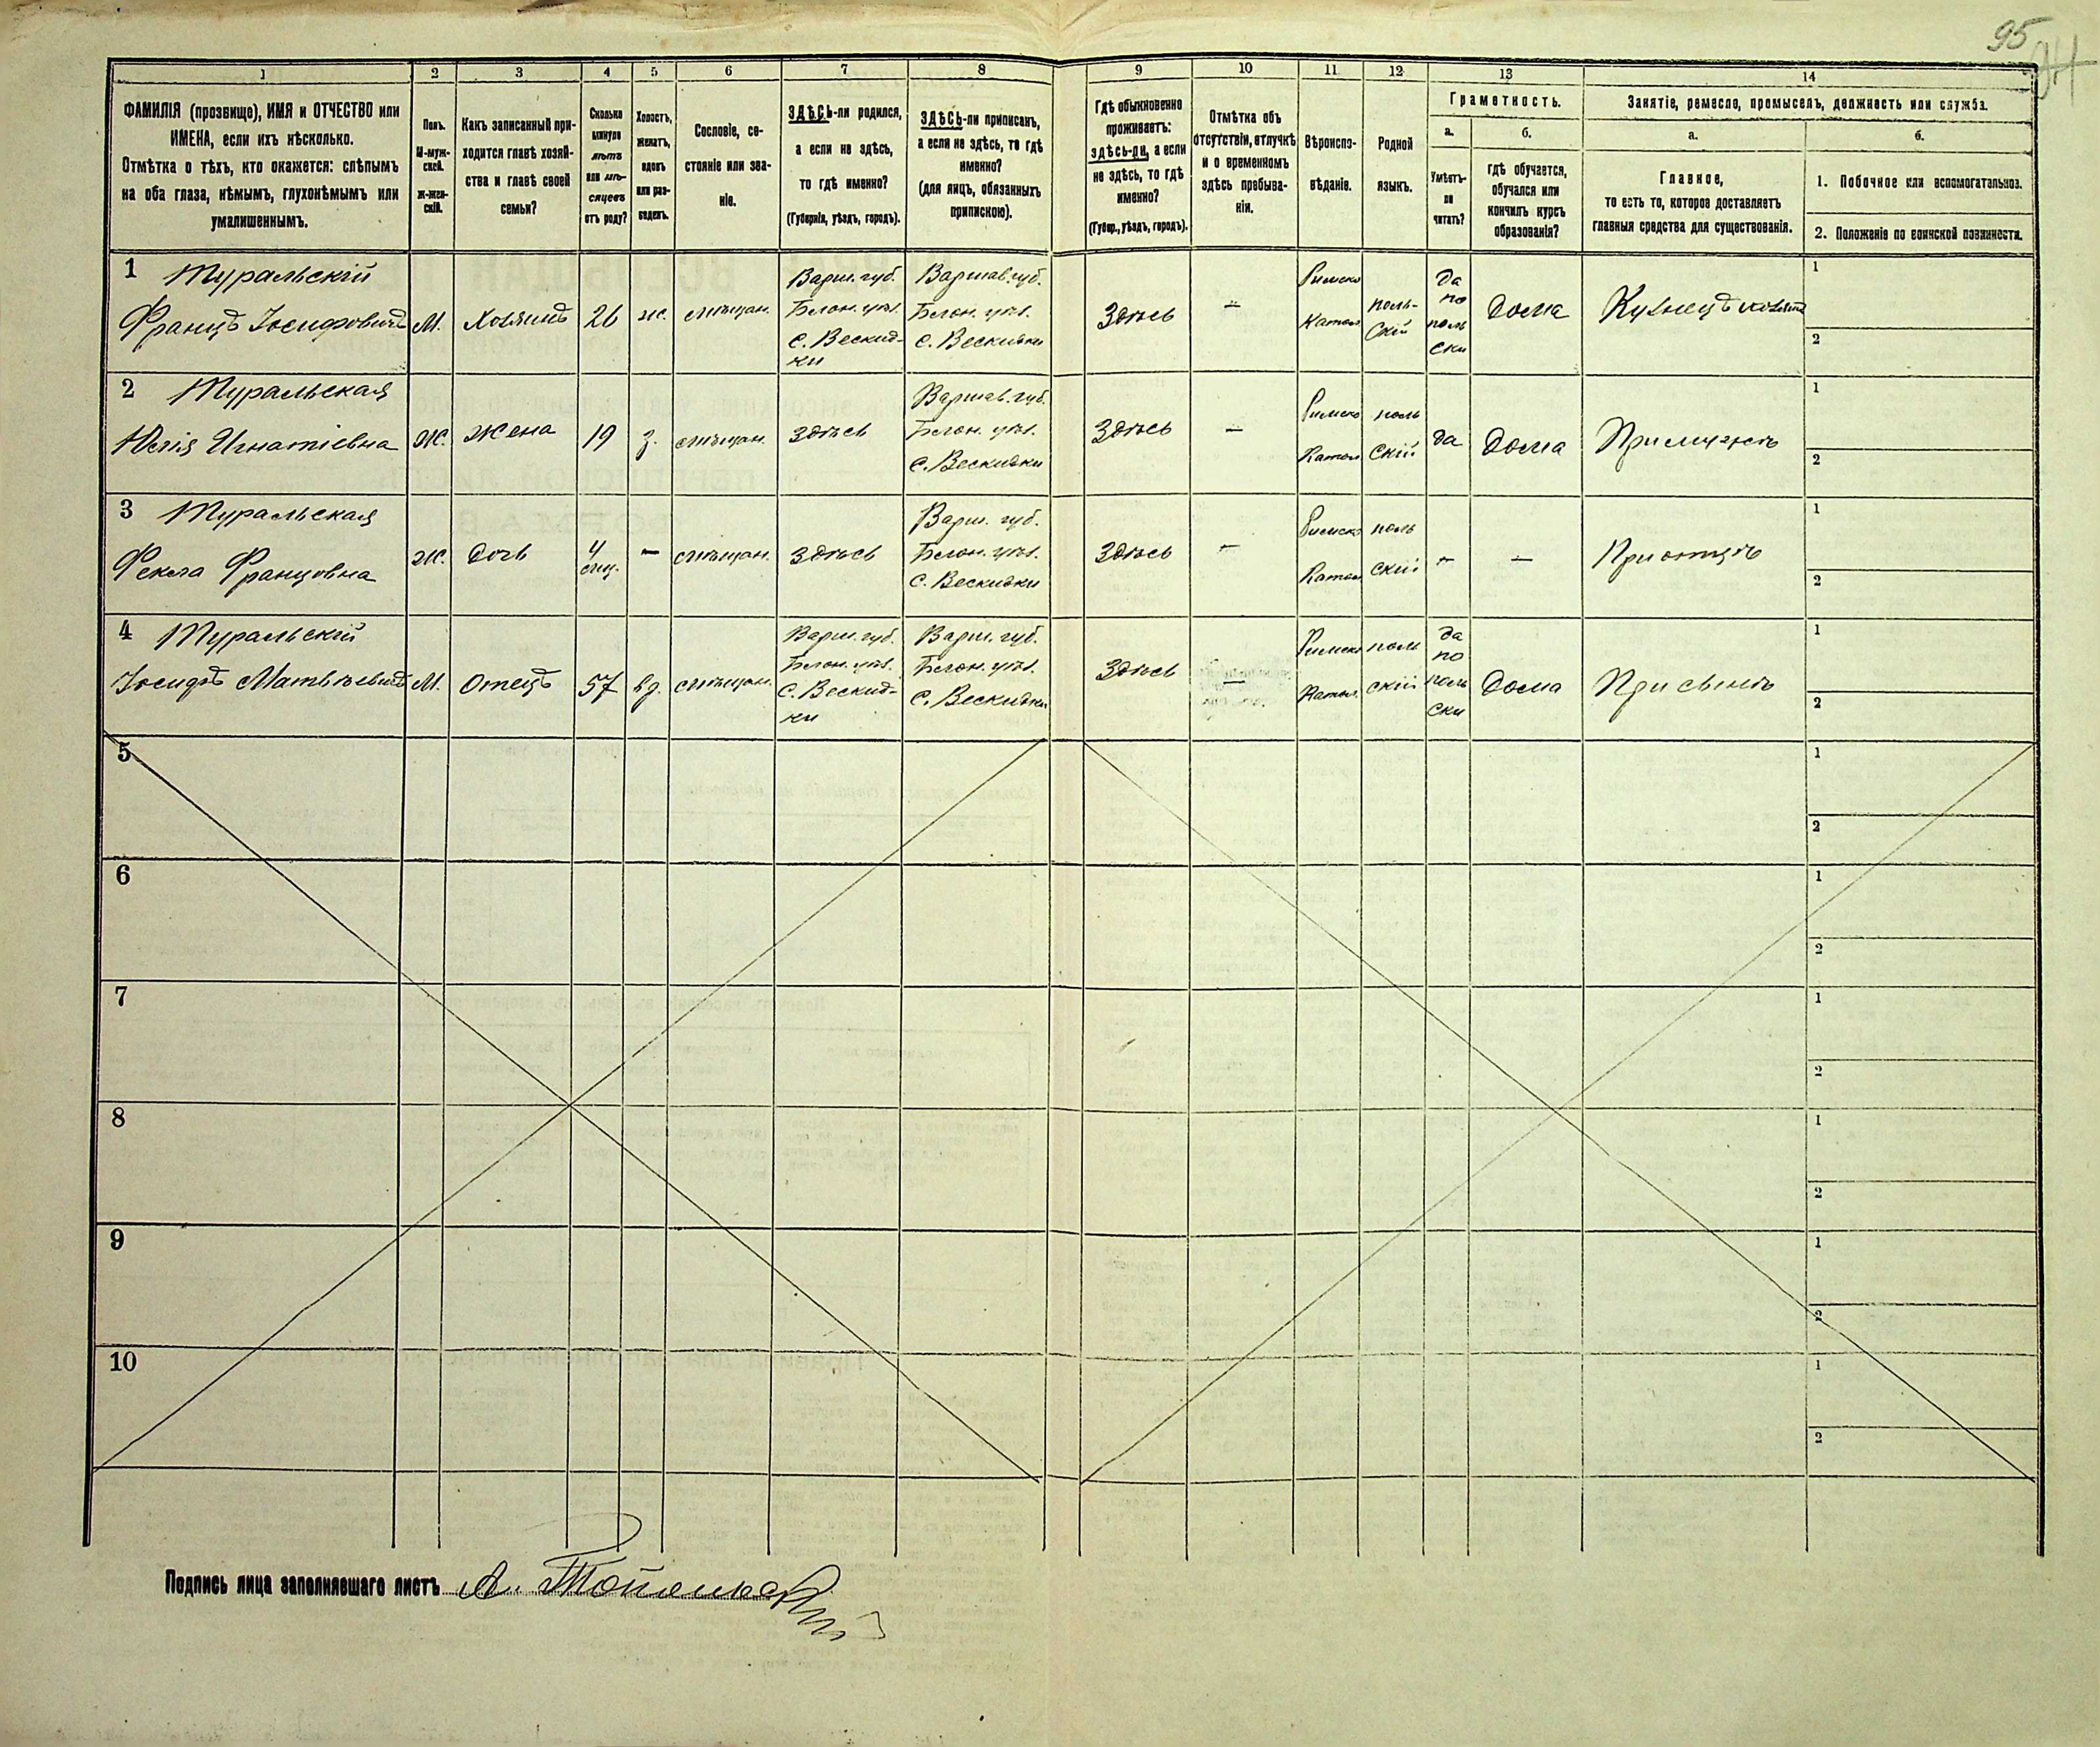 95
1 2 3 4 5 6 7 8 9 10 11 12 13 14
ФАМИЛІЯ (прозвище), ИМЯ и ОТЧЕСТВО или
ИМЕНА, если ихъ нѣсколько.
Отмѣтка о тѣхъ, кто окажется: слѣпымъ
на оба глаза, нѣмымъ, глухонѣмымъ или
умалишеннымъ.
Полъ.
М-муж-
ской.
Ж-жен-
скій.
Какъ записанный при-
ходится главѣ хозяй-
ства и главѣ своей
семьи?
Сколько
минуло
лѣтъ
или мѣ-
сяцевъ
отъ роду?
Холостъ,
женатъ,
вдовъ
или раз-
веденъ.
Сословіе, со-
стояніе или зва-
ніе.
ЗДѢСЬ-ли родился,
а если не здѣсь,
то гдѣ именно?
(Губернія, уѣздъ, городъ).
ЗДѢСЬ-ли приписанъ,
а если не здѣсь, то гдѣ
именно?
(для лицъ, обязанныхъ
припискою).
Гдѣ обыкновенно
проживаетъ:
здѣсь-ли, а если
не здѣсь, то гдѣ
именно?
(Губер., уѣздъ, городъ).
Отмѣтка объ
отсутствіи, отлучкѣ
и о временномъ
здѣсь пребыва-
ніи.
Вѣроиспо-
вѣданіе.
Родной
языкъ.
Грамотность.
а.
Умѣетъ-
ли
читать?
б.
гдѣ обучается,
обучался или
кончилъ курсъ
образованія?
Занятіе, ремесло, промыселъ, должность или служба.
а.
Главное,
то есть то, которое доставляетъ
главныя средства для существованія.
б.
1. Побочное или вспомогательное.
2. Положеніе по воинской повинности.
1 Муральскій
Францъ Іосифовичъ
М.
Хозяинъ
26
ж.
мѣщан.
Варш. губ.
Блон. уѣз.
с. Вескид-
ки
Варшав. губ.
Блон. уѣз.
с. Вескидки
Здѣсь
—
Римско
Катол
поль-
скій
да
по
поль
ски
Дома
Кузнецъ хозяинъ
1
2
2 Муральская
Юлія Игнатіевна
Ж.
Жена
19
з.
мѣщан.
Здѣсь
Варшав. губ.
Блон. уѣз.
с. Вескидки
Здѣсь
—
Римско
Катол
поль
скій
да
Дома
При мужѣ
1
2
3 Муральская
Фекла Францовна
Ж.
Дочь
4
мц.
—
мѣщан.
Здѣсь
Варш. губ.
Блон. уѣз.
с. Вескидки
Здѣсь
—
Римско
Катол
поль
скій
—
—
При отцѣ
1
2
4 Муральскій
Іосифъ Матвѣевичъ
М.
Отецъ
57
вд.
мѣщан.
Варш. губ.
Блон. уѣз.
с. Вескид-
ки
Варш. губ.
Блон. уѣз.
с. Вескидки
Здѣсь
—
Римско
Катол.
поль
скій
да
по
поль
ски
Дома
При сынѣ
1
2
5
1
2
6
1
2
7
1
2
8
1
2
9
1
2
10
1
2
Подпись лица заполнявшаго листъ